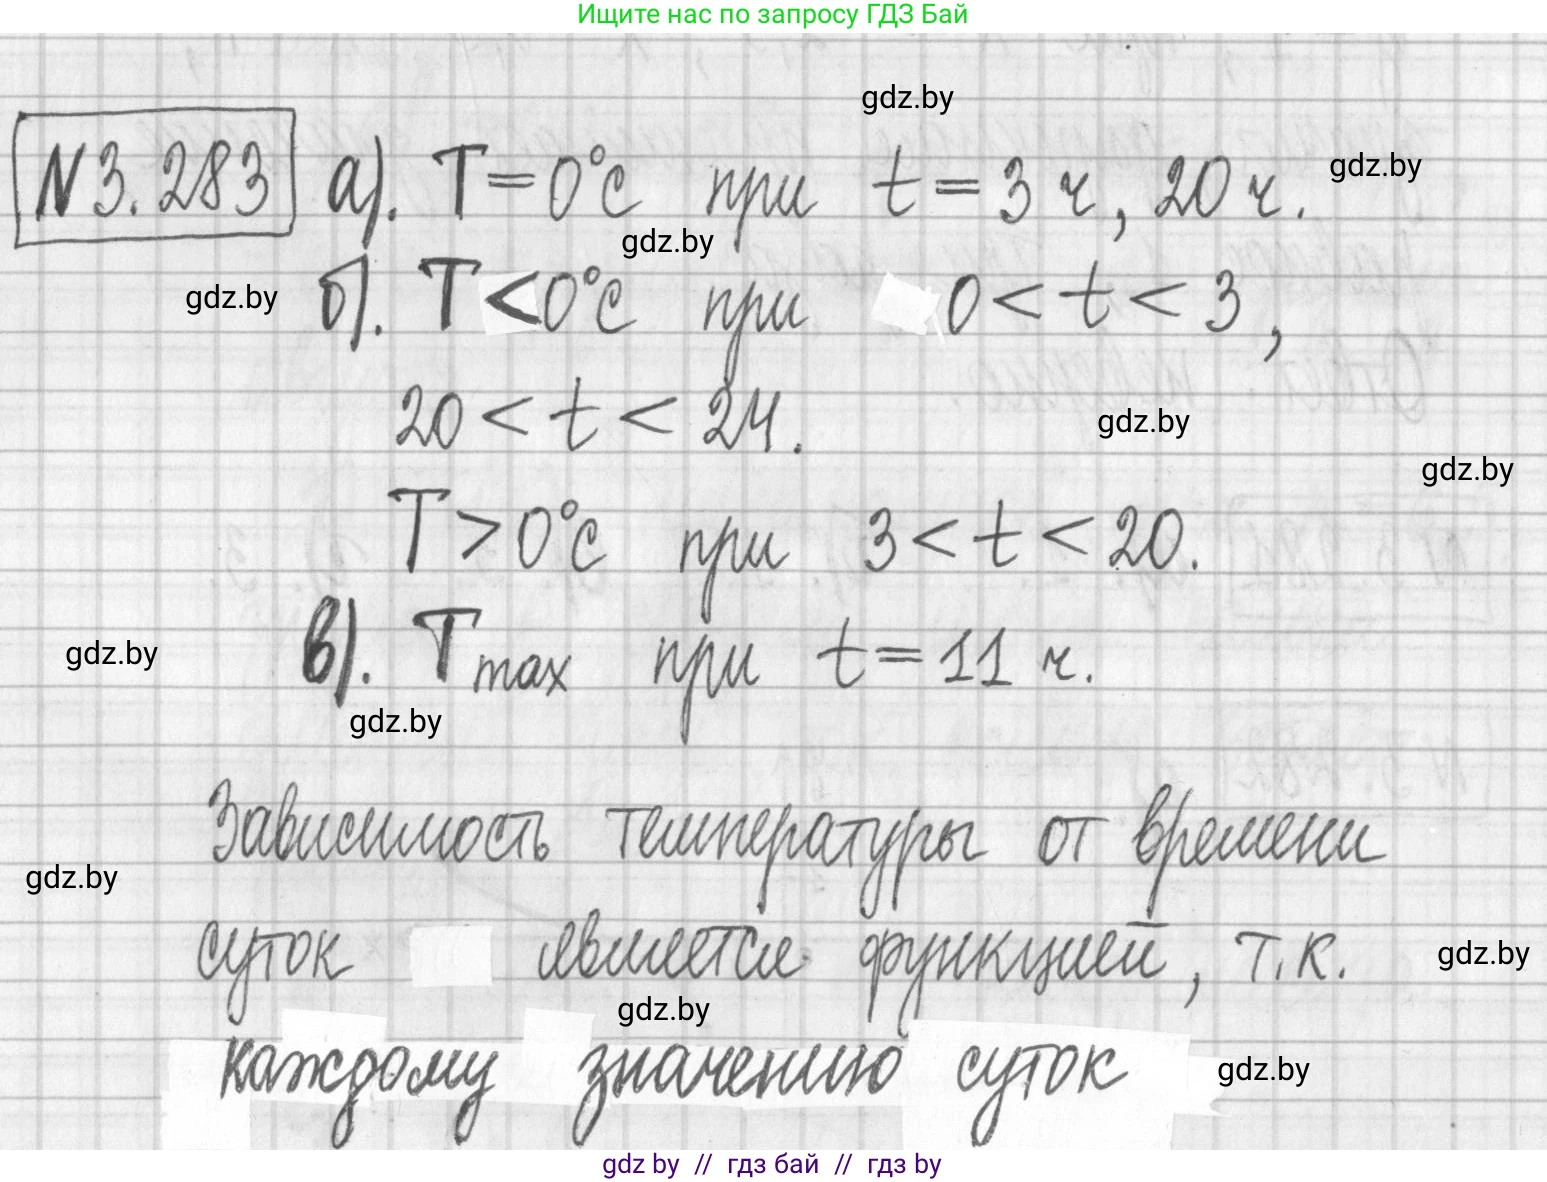 Ищите нас по запросу ГДЗ Бай
gdz.by
N3.283 а). T=0°C при t=3 ч, 20 ч.
gdz.by
gdz.by
gdz.by
б). T<0°C при 0<t<3,
20<t<24.
gdz.by
gdz.by
T>0°C при 3<t<20.
в). Tmax при t=11 ч.
gdz.by
gdz.by
Зависимость температуры от времени
gdz.by
суток является функцией, т.к.
gdz.by
gdz.by
каждому значению суток
gdz.by
gdz by // гдз бай // гдз by